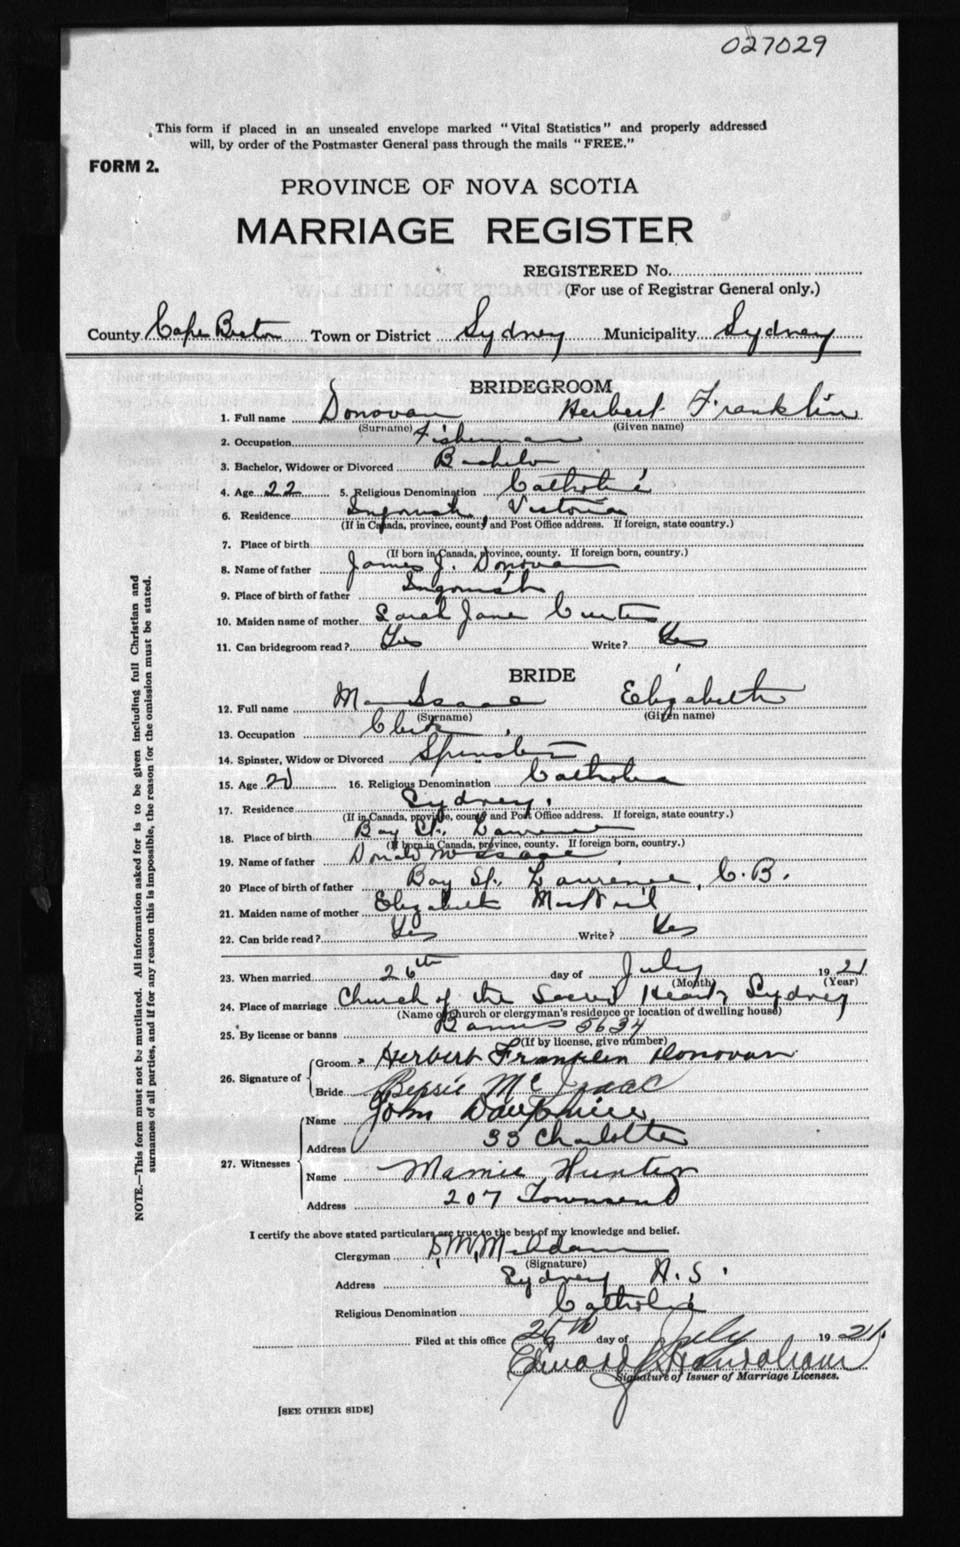 027029
This form if placed in an unsealed envelope marked "Vital Statistics" and properly addressed
will, by order of the Postmaster General pass through the mails "FREE."
FORM 2.
PROVINCE OF NOVA SCOTIA
MARRIAGE REGISTER
REGISTERED No.
(For use of Registrar General only.)
County Cape Breton Town or District Sydney Municipality Sydney
BRIDEGROOM
1. Full name Donovan Herbert Franklin
(Surname) (Given name)
2. Occupation Fisherman
3. Bachelor, Widower or Divorced Bachelor
4. Age 22 5. Religious Denomination Catholic
6. Residence Ingonish, Victoria
(If in Canada, province, county and Post Office address. If foreign, state country.)
7. Place of birth
(If born in Canada, province, county. If foreign born, country.)
8. Name of father James J. Donovan
9. Place of birth of father Ingonish
10. Maiden name of mother Sarah Jane Curtis
11. Can bridegroom read? Yes Write? Yes
BRIDE
12. Full name MacIsaac Elizabeth
(Surname) (Given name)
13. Occupation Clerk
14. Spinster, Widow or Divorced Spinster
15. Age 20 16. Religious Denomination Catholic
17. Residence Sydney.
(If in Canada, province, county and Post Office address. If foreign, state country.)
18. Place of birth Bay St. Lawrence
(If born in Canada, province, county. If foreign born, country.)
19. Name of father Donald McIsaac
20 Place of birth of father Bay St. Lawrence, C.B.
21. Maiden name of mother Elizabeth MacNeil
22. Can bride read? Yes Write? Yes
23. When married 26th day of July 1921
(Month) (Year)
24. Place of marriage Church of the Sacred Heart, Sydney
(Name of church or clergyman's residence or location of dwelling house)
25. By license or banns Banns 5634
(If by license, give number)
26. Signature of
Groom Herbert Franklin Donovan
Bride Bessie Mc Isaac
27. Witnesses
Name John Dauphnee
Address 33 Charlotte
Name Mamie Hunter
Address 207 Townsend
I certify the above stated particulars are true to the best of my knowledge and belief.
Clergyman
(Signature)
Address Sydney N.S.
Religious Denomination Catholic
Filed at this office 26th day of July 1921.
Edward
Signature of Issuer of Marriage Licenses.
[SEE OTHER SIDE]
NOTE.—This form must not be mutilated. All information asked for is to be given including full Christian and
surnames of all parties, and if for any reason this is impossible, the reason for the omission must be stated.